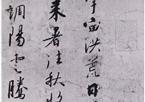 宇宙洪荒日
來暑往秋收
調陽雲騰